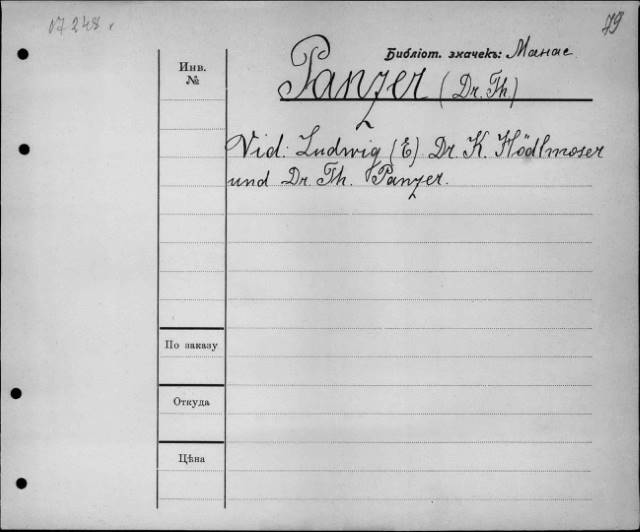 17248.
79
Библіот. значекъ: Манас
Инв.
№
Panzer (Dr. Th.)
Vid: Ludwig (E) Dr. K. Hödlmoser
und Dr. Th. Panzer.
По заказу
Откуда
Цѣна